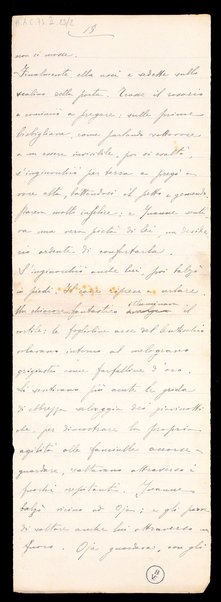 13
non si mosse.
Finalmente ella uscì e sedette sullo
scalino della porta. Trasse il rosario
e cominciò a pregare; sulle prime
bisbigliava, come parlando sottovoce
a un essere invisibile, poi si esaltò,
s'inginocchiò per terra e pregò a
voce alta, battendosi il petto e gemendo.
pareva molto infelice; e
una vera pietà di lei, un deside-
rio ardente di confortarla.
S'inginocchiò anche lui, poi balzò
in piedi.
Un chiarore fantastico illuminava il
cortile; le foglioline accese
volavano intorno al melograno
grigiastre come farfalline d'oro.
Si sentivano più acute le grida
di ebbrezza selvaggia dei giovinotti
che, per dimostrare la propria
agilità alle fanciulle accorse a
guardare, saltavano attraverso i
fuochi crepitanti.
balzò vicino ad Oja; e gli parve
di saltare anche lui attraverso un
fuoco. Oja guardava, con gli